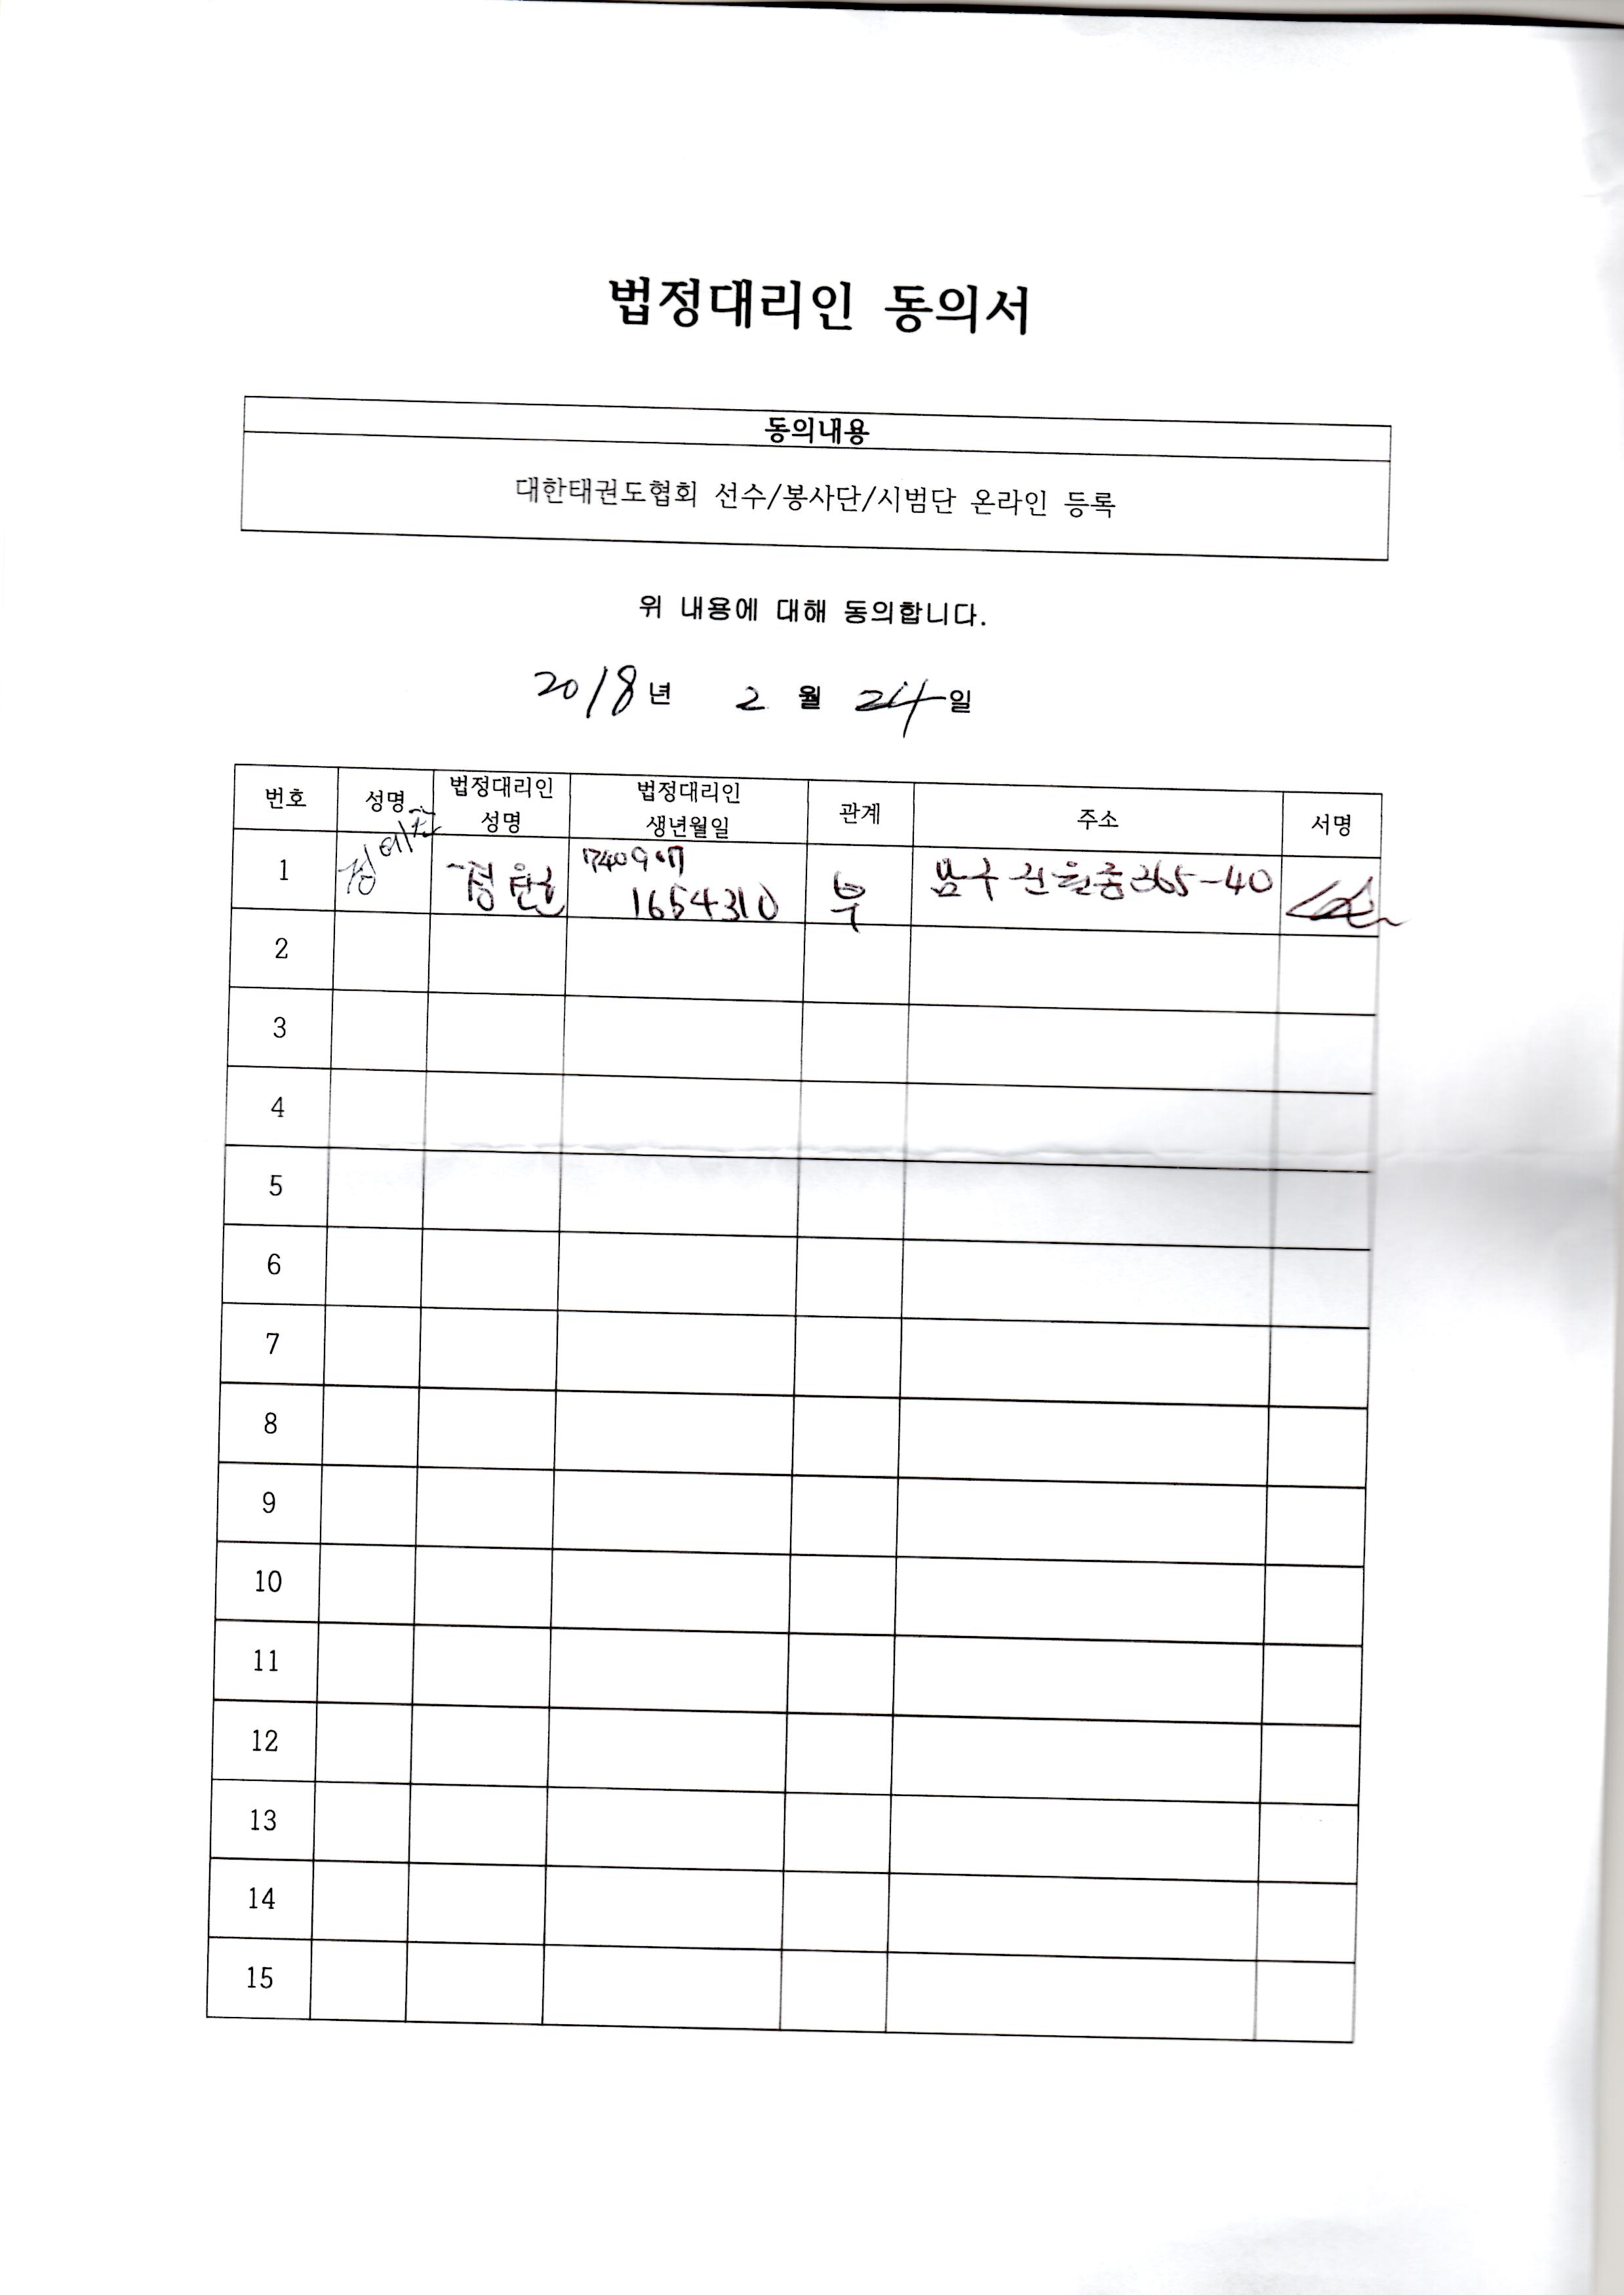 법정대리인 동의서
동의내용
대한태권도협회 선수/봉사단/시범단 온라인 등록
위 내용에 대해 동의합니다.
2018년 2 월 24일
번호 성명 법정대리인 성명 법정대리인 생년월일 관계 주소 서명
1 부 남구 365-40
2
3
4
5
6
7
8
9
10
11
12
13
14
15